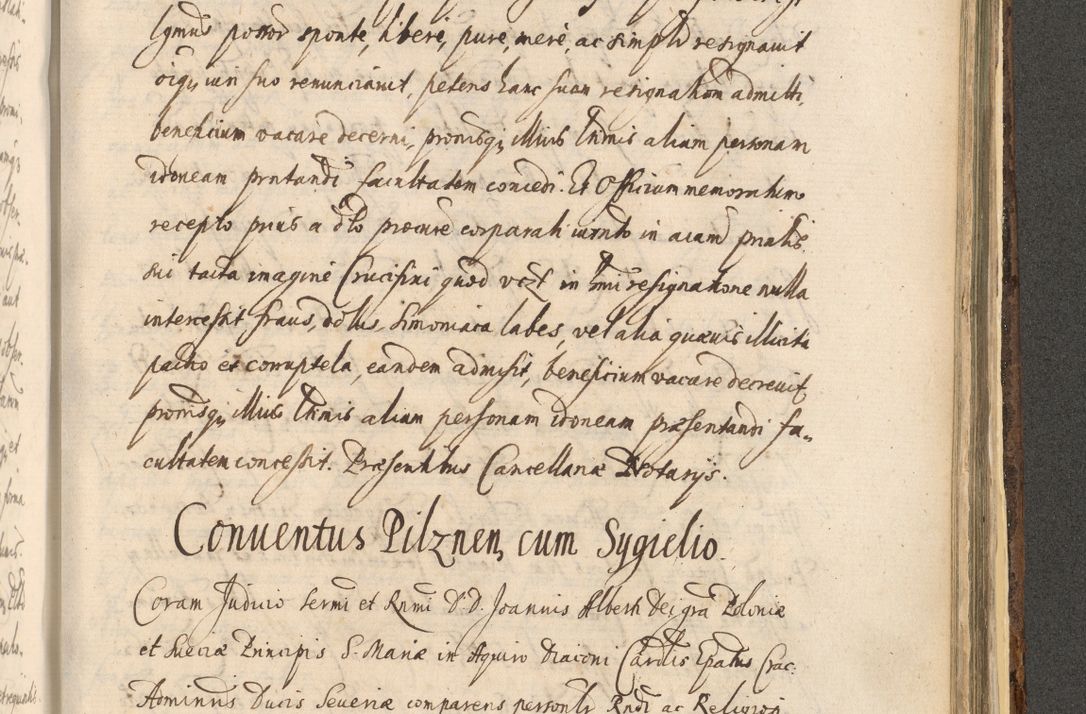 lgmus potior sponte, libere, pure, mere, ac simplr resignauit
oiq3 iuri suo renunciauit, petens hanc suam resignationem admitti,
beneficium vacare decerni, promisq3 illius ltimis aliam personam
idoneam prntandi facultatem concedi. Et Officium memoratum
recepto prius a dto procure corporali iurnto in aiam prnlis
sui tacta imagine Crucifixi quod vczt in hmoi resignatione nulla
intercessit fraus, dolus, simoniaca labes, vel alia quauis illicita
pactio et corruptela, eandem admisit, beneficium vacare decreuit
promisq3 illius ltimis aliam personam idoneam præsentandi fa-
cultatem concessit. Præsentibus Cancellariæ Notarijs.
Conuentus Pilznen, cum Sygielio.
Coram Judicio Sermi et Rnmi D.D. Joannis Alberti Dei gra Poloniæ
et Sueciæ Principis S. Mariæ in Aquiro Diaconi Cardlis Epatus Crac.
Administris Ducis Seueriæ comparens personlr Rndi ac Religiosi